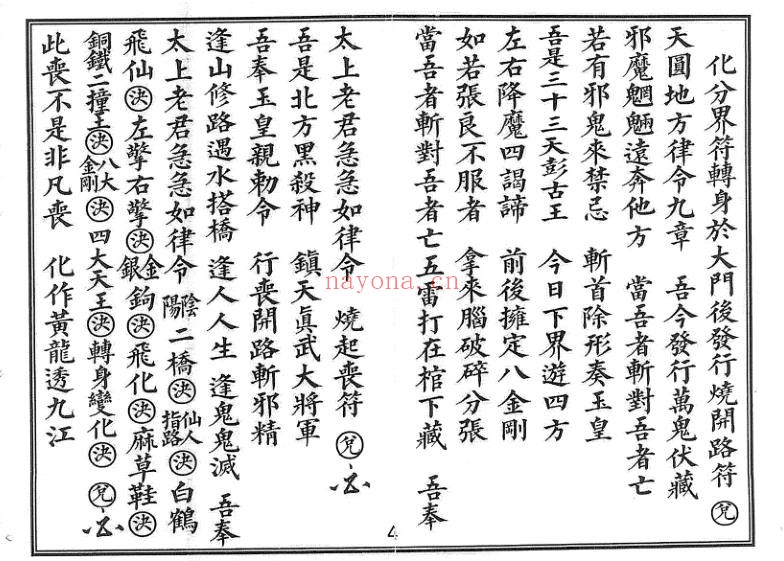 化分界符轉身於大門後發行燒開路符㊁兌
天圓地方律令九章　吾今發行萬鬼伏藏
邪魔魍魎遠奔他方　當吾者斬對吾者亡
若有邪鬼來禁忌　斬首除形奏玉皇
吾是三十三天彭古王　今日下界遊四方
左右降魔四謁諦　前後擁定八金剛
如若張良不服者　拿來腦破碎分張
當吾者斬對吾者亡五雷打在棺下藏　吾奉
太上老君急急如律令　燒起喪符兌
吾是北方黑殺神　鎮天眞武大將軍
吾奉玉皇親勅令　行喪開路斬邪精
逢山修路遇水搭橋　逢人人生　逢鬼鬼滅　吾奉
太上老君急急如律令　陰陽二橋決仙人指路決白鶴
飛仙決左擎右擎決金銀鉤決飛化決麻草鞋決
銅鐵二撞王決八大金剛決四大天王決轉身變化決　兌
此喪不是非凡喪　化作黃龍透九江
nayona.cn
4